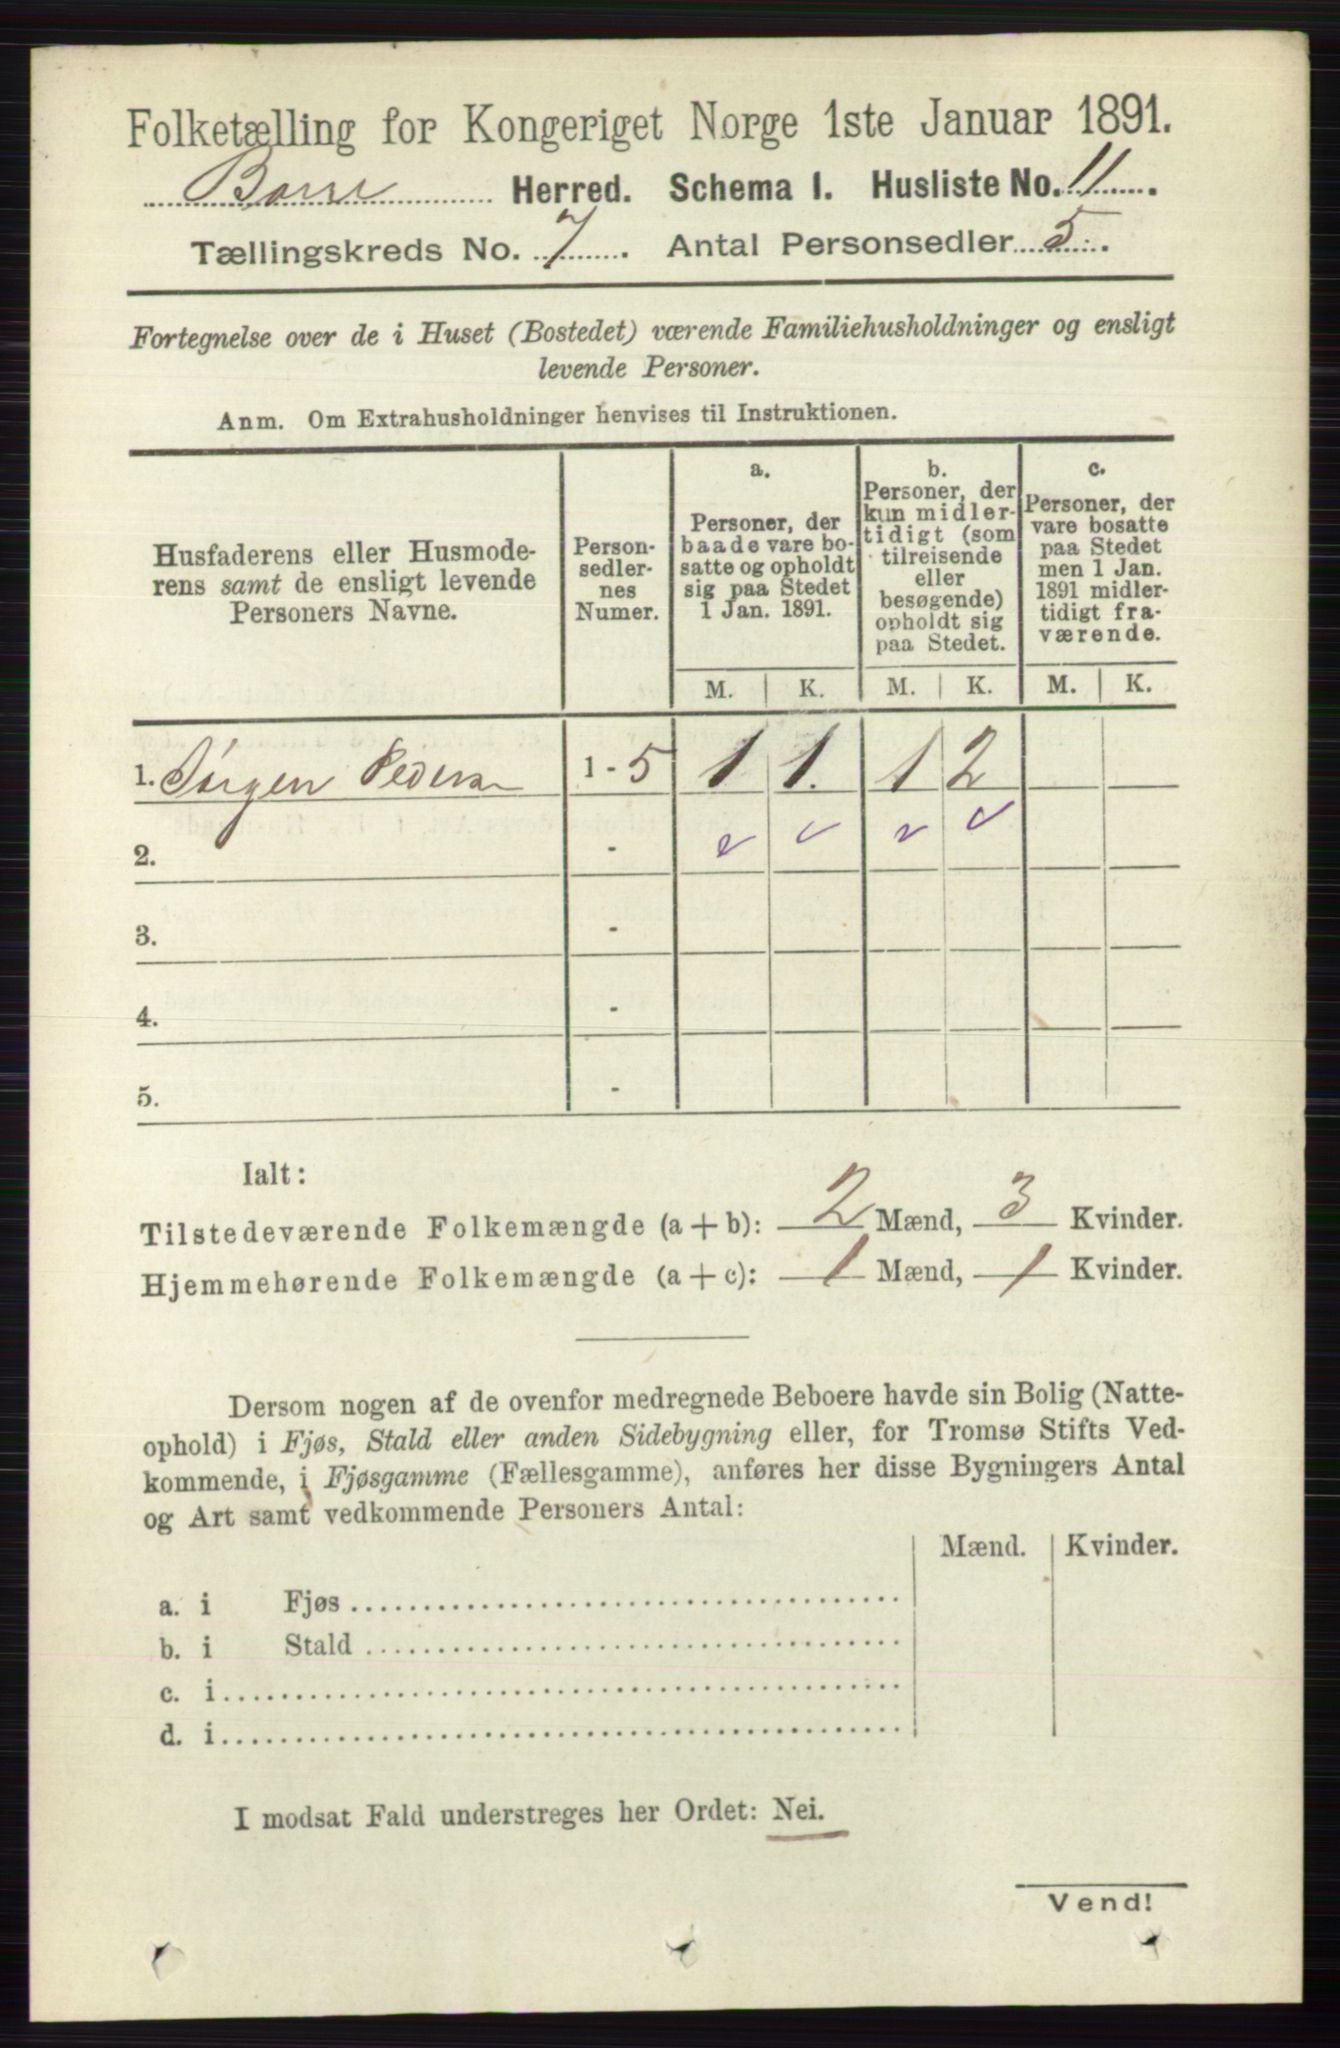 Folketælling for Kongeriget Norge 1ste Januar 1891.
Borre Herred. Schema I. Husliste No. 11.
Tællingskreds No. 7. Antal Personsedler 5.
Fortegnelse over de i Huset (Bostedet) værende Familiehusholdninger og ensligt
levende Personer.
Anm. Om Extrahusholdninger henvises til Instruktionen.
Husfaderens eller Husmode-
rens samt de ensligt levende
Personers Navne.
Person-
sedler-
nes
Numer.
a.
Personer, der
baade vare bo-
satte og opholdt
sig paa Stedet
1 Jan. 1891.
b.
Personer, der
kun midler-
tidigt (som
tilreisende
eller
besøgende)
opholdt sig
paa Stedet.
c.
Personer, der
vare bosatte
paa Stedet
men 1 Jan.
1891 midler-
tidigt fra-
værende.
M. K. M. K. M. K.
1. Jørgen Pedersen 1 - 5 1 1. 1 2
2. -
3. -
4. -
5. -
Ialt:
Tilstedeværende Folkemængde (a + b): 2 Mænd, 3 Kvinder.
Hjemmehørende Folkemængde (a + c): 1 Mænd, 1 Kvinder.
Dersom nogen af de ovenfor medregnede Beboere havde sin Bolig (Natte-
ophold) i Fjøs, Stald eller anden Sidebygning eller, for Tromsø Stifts Ved-
kommende, i Fjøsgamme (Fællesgamme), anføres her disse Bygningers Antal
og Art samt vedkommende Personers Antal:
Mænd. Kvinder.
a. i Fjøs
b. i Stald
c. i
d. i
I modsat Fald understreges her Ordet: Nei.
Vend!